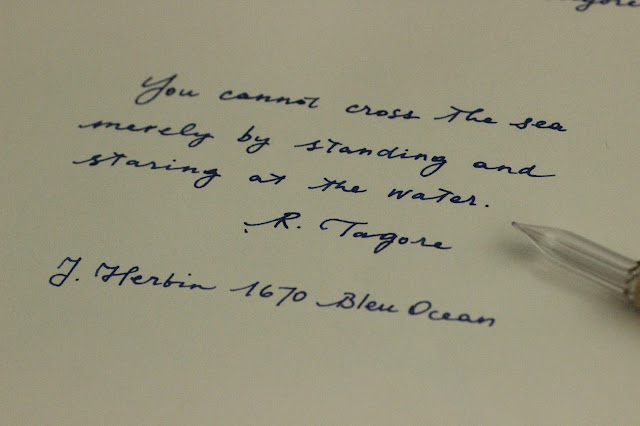 Tagore
You cannot cross the sea
merely by standing and
staring at the water.
R. Tagore
J. Herbin 1670 Bleu Ocean